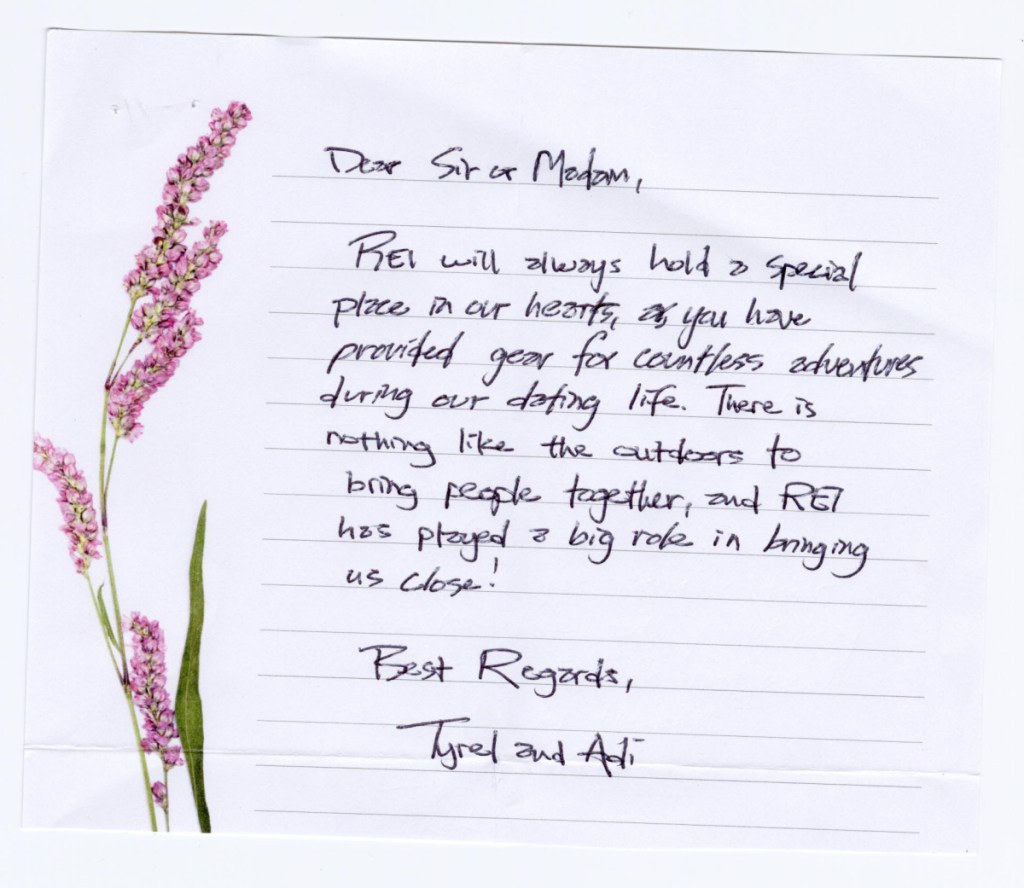 Dear Sir or Madam,
REI will always hold a special
place in our hearts, as you have
provided gear for countless adventures
during our dating life. There is
nothing like the outdoors to
bring people together, and REI
has played a big role in bringing
us close!
Best Regards,
Tyrel and Adi